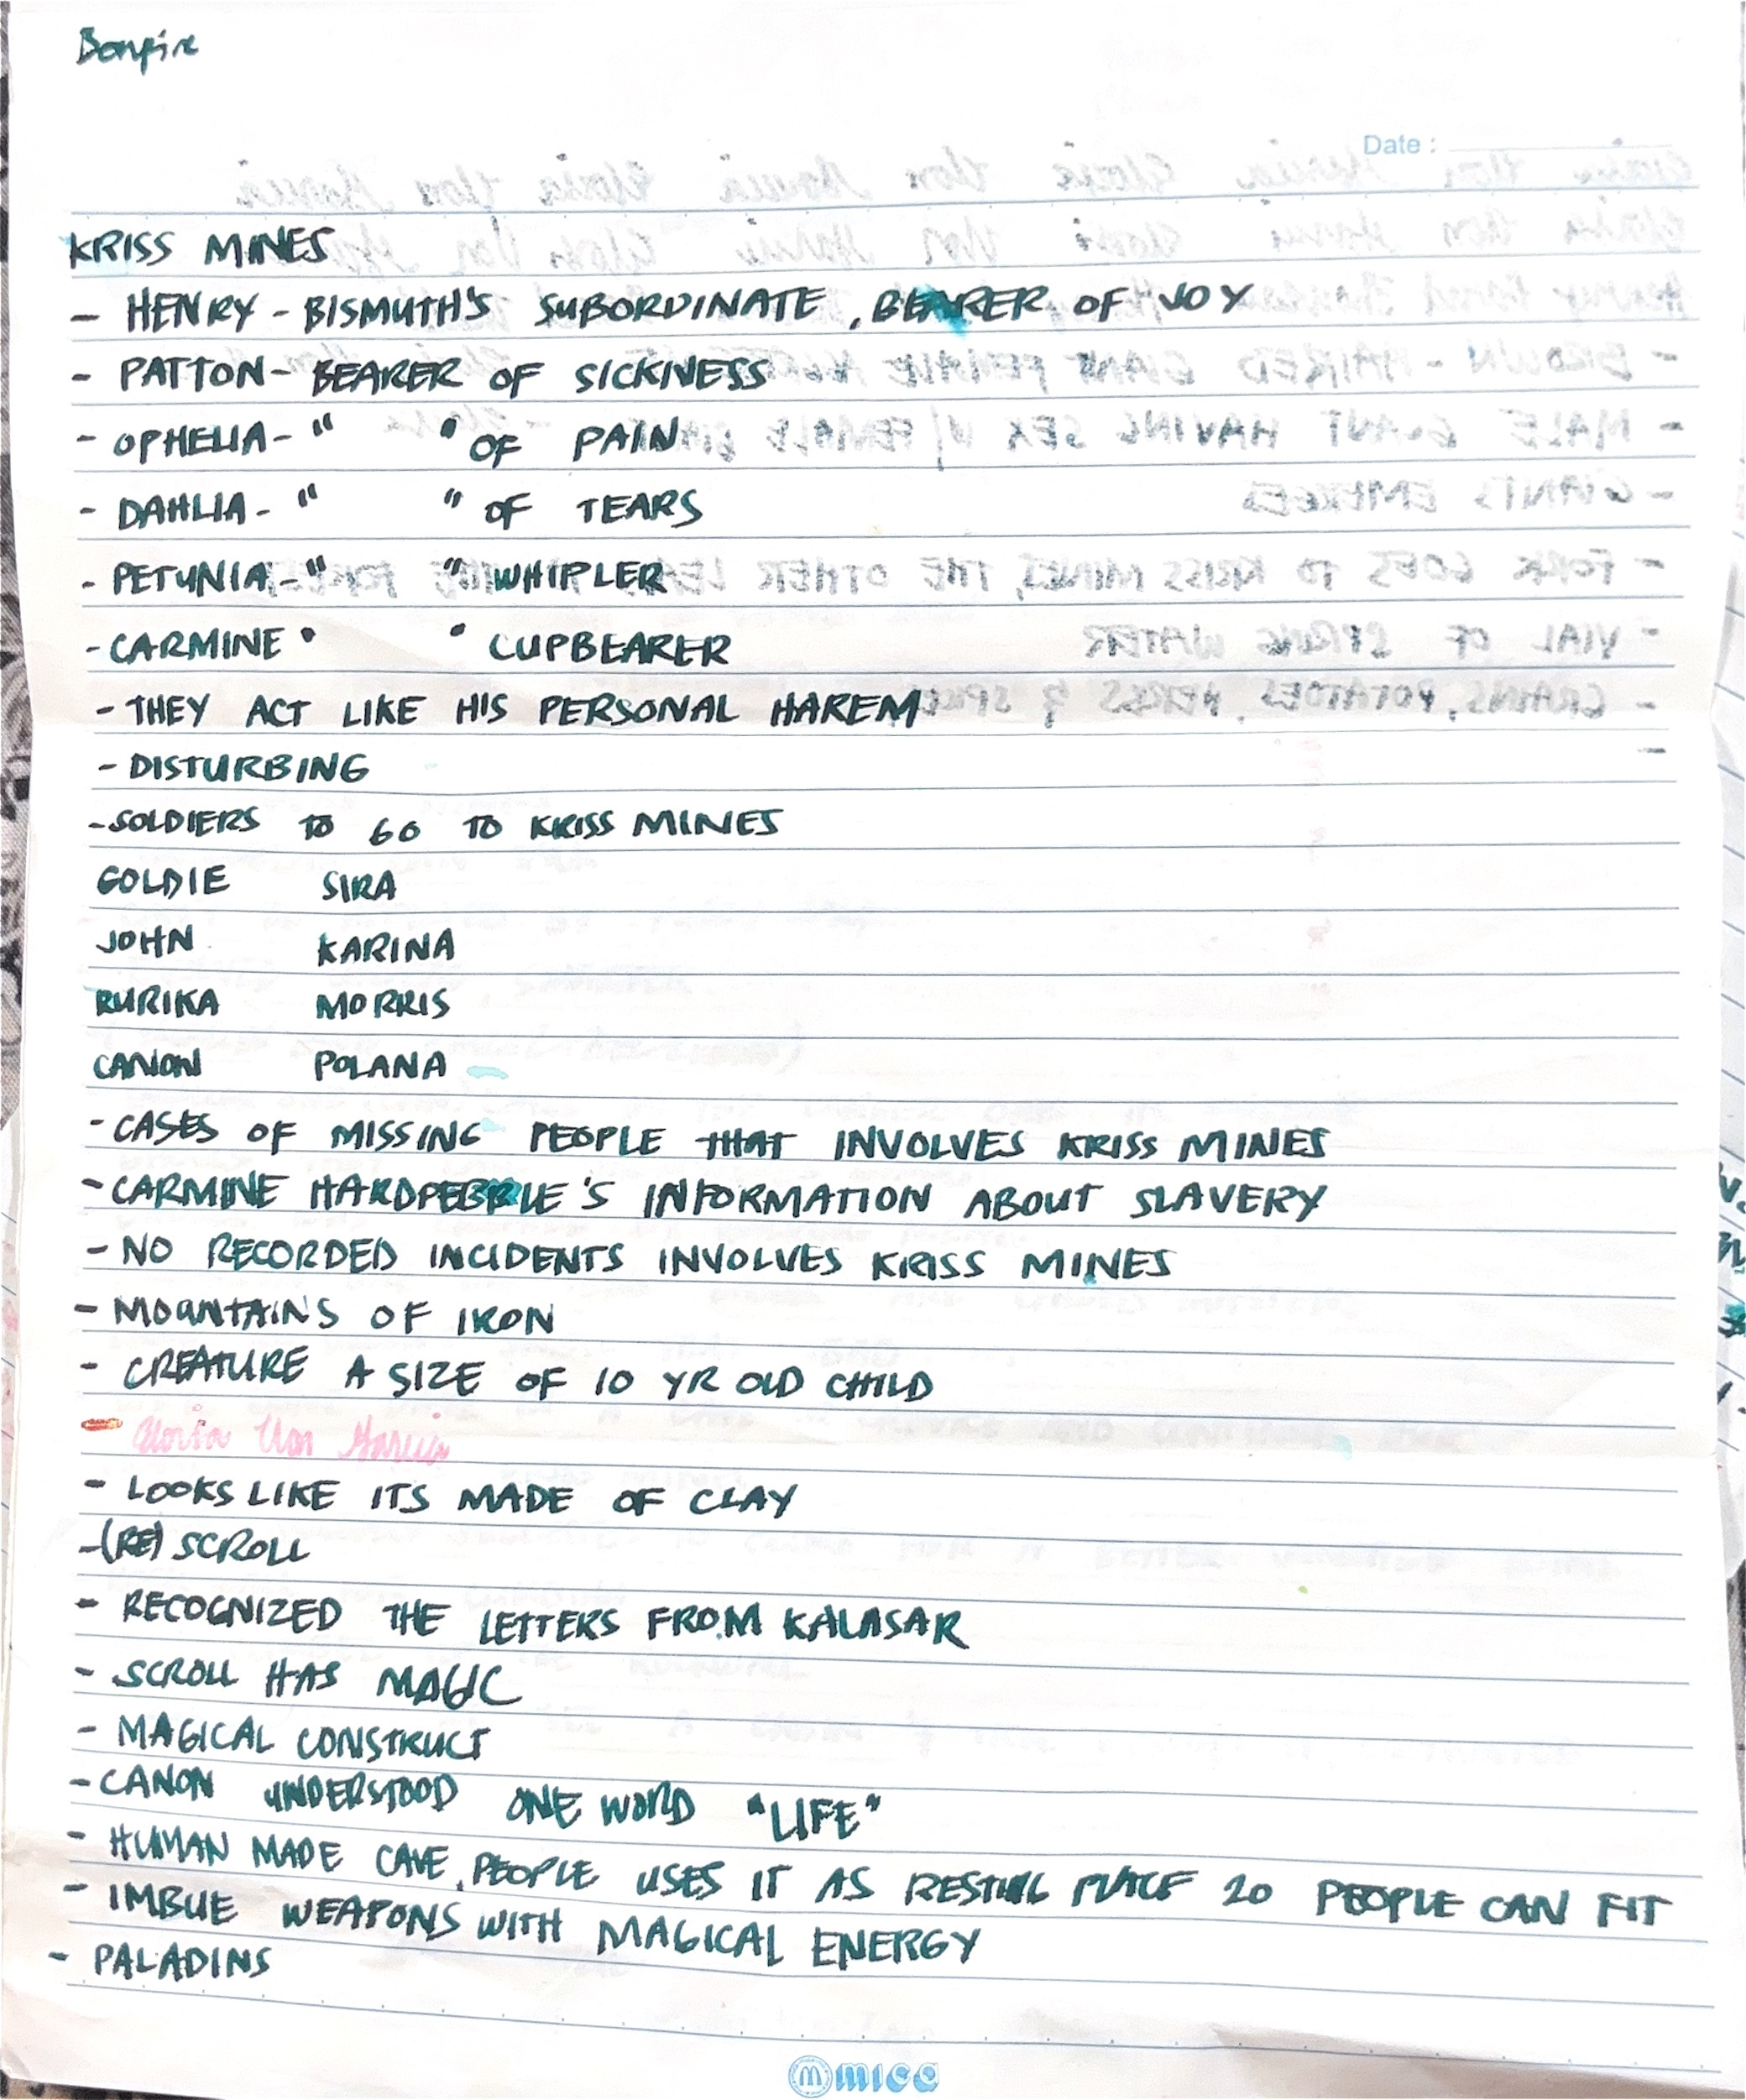 Bonfire
Date :
KRISS MINES
- HENRY - BISMUTH'S SUBORDINATE, BEARER OF JOY
- PATTON - BEARER OF SICKNESS
- OPHELIA - " " OF PAIN
- DAHLIA - " " OF TEARS
- PETUNIA - " " WHIPLER
- CARMINE " " CUPBEARER
- THEY ACT LIKE HIS PERSONAL HAREM
- DISTURBING
- SOLDIERS TO GO TO KRISS MINES
GOLDIE SIRA
JOHN KARINA
RURIKA MORRIS
CANON POLANA
- CASES OF MISSING PEOPLE THAT INVOLVES KRISS MINES
- CARMINE HARDPEBBLE'S INFORMATION ABOUT SLAVERY
- NO RECORDED INCIDENTS INVOLVES KRISS MINES
- MOUNTAINS OF IRON
- CREATURE A SIZE OF 10 YR OLD CHILD
- Von
- LOOKS LIKE ITS MADE OF CLAY
- (RE) SCROLL
- RECOGNIZED THE LETTERS FROM KALASAR
- SCROLL HAS MAGIC
- MAGICAL CONSTRUCT
- CANON UNDERSTOOD ONE WORD "LIFE"
- HUMAN MADE CAVE, PEOPLE USES IT AS RESTING PLACE 20 PEOPLE CAN FIT
- IMBUE WEAPONS WITH MAGICAL ENERGY
- PALADINS
mica